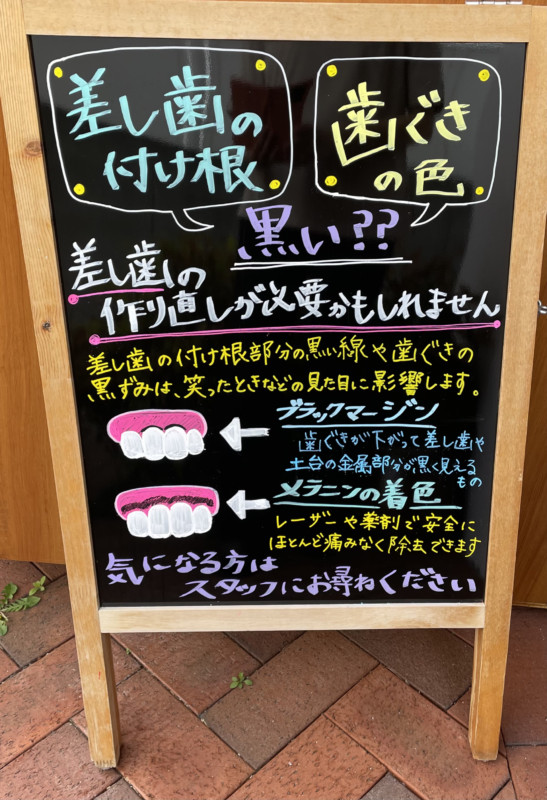 差し歯の
付け根
歯ぐき
の色
黒い??
差し歯の
作り直しが必要かもしれません
差し歯の付け根部分の黒い線や歯ぐきの
黒ずみは、笑ったときなどの見た目に影響します。
ブラックマージン
歯ぐきが下がって差し歯や
土台の金属部分が黒く見える
もの
メラニンの着色
レーザーや薬剤で安全に
ほとんど痛みなく除去できます
気になる方は
スタッフにお尋ねください